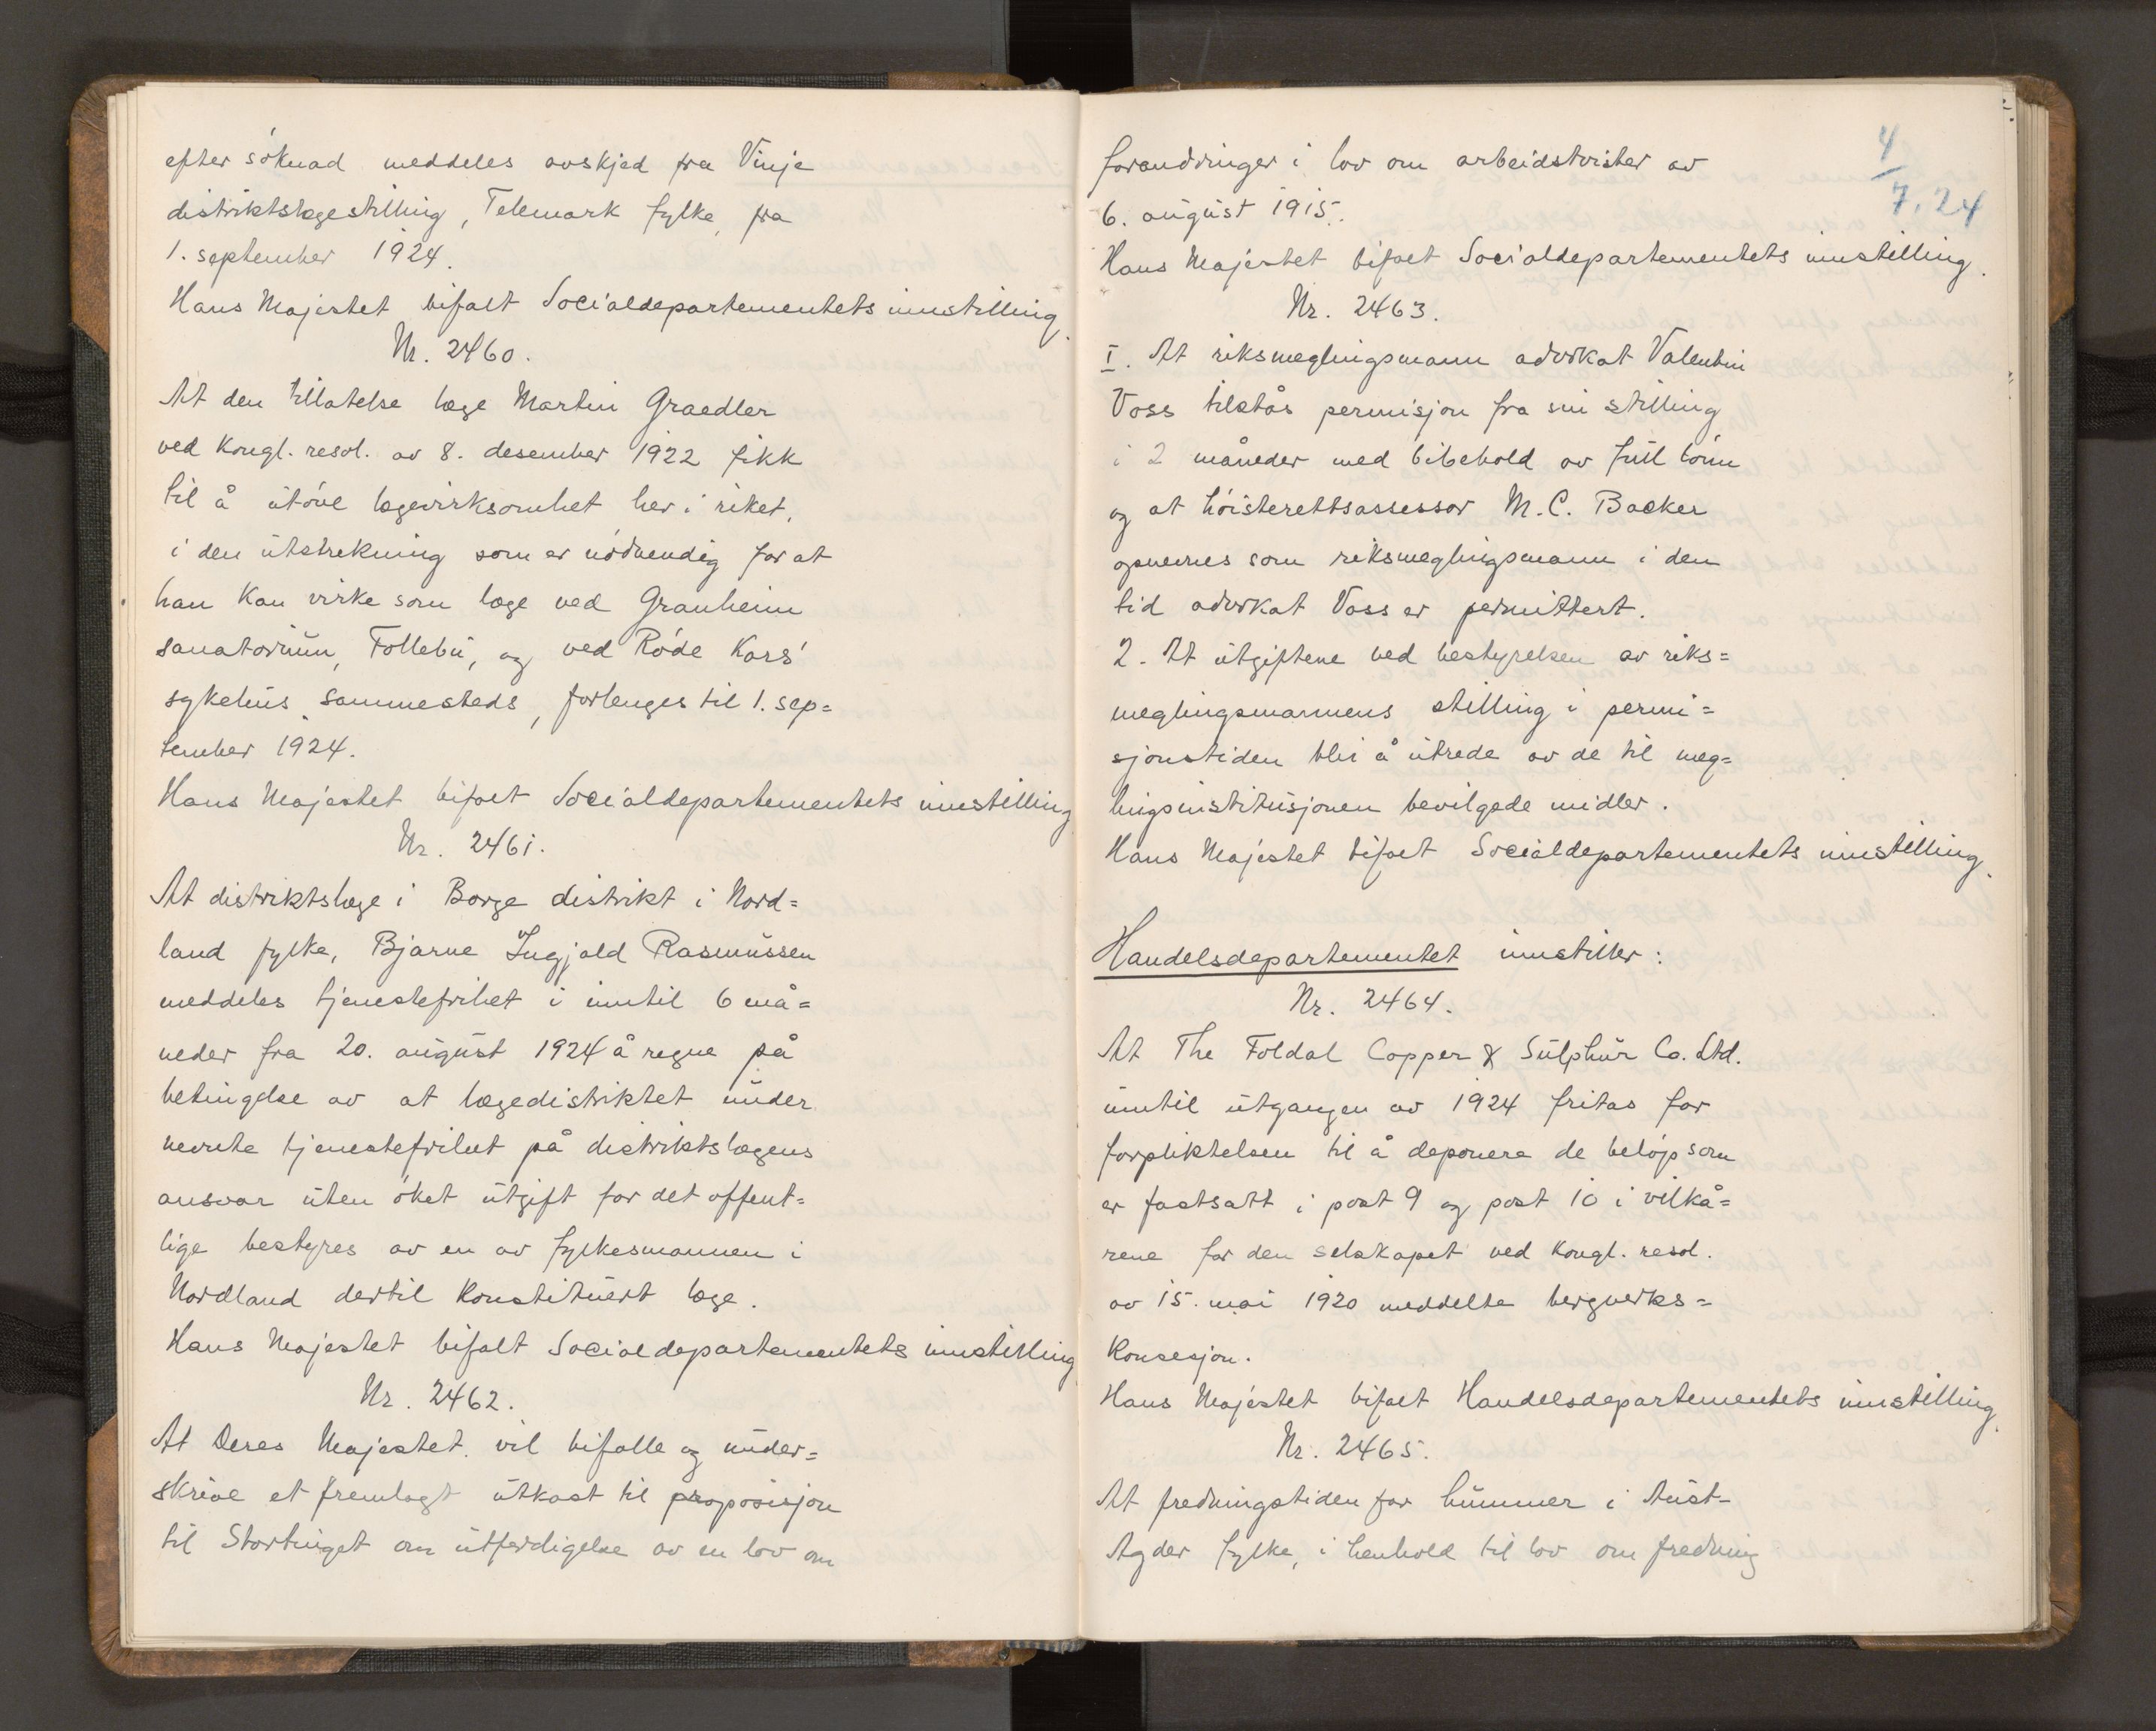 efter søknad meddeles avskjed fra Vinje
distriktslægestilling, Telemark fylke, fra
1. september 1924.
Hans Majestet bifalt Socialdepartementets innstilling.
Nr. 2460.
At den tillatelse læge Martin Graedler
ved kongl. resol. av 8. desember 1922 fikk
til å utøve lægevirksomhet her i riket,
i den utstrekning som er nødvendig for at
han kan virke som læge ved Granheim
sanatorium, Follebu, og ved Røde Kors'
sykehus sammesteds, forlenges til 1. sep=
tember 1924.
Hans Majestet bifalt Socialdepartementets innstilling
Nr. 2461.
At distriktslæge i Borge distrikt i Nord=
land fylke, Bjarne Ingjald Rasmussen
meddeles tjenestefrihet i inntil 6 må=
neder fra 20. august 1924 å regne på
betingelse av at lægedistriktet under
nevnte tjenestefrihet på distriktslægens
ansvar uten øket utgift for det offent=
lige bestyres av en av fylkesmannen i
Nordland dertil konstituert læge.
Hans Majestet bifalt Socialdepartementets innstilling
Nr. 2462.
At Deres Majestet vil bifalle og under=
skrive et fremlagt utkast til proposisjon
til Stortinget om utferdigelse av en lov om
4/7.24
forandringer i lov om arbeidstvister av
6. august 1915.
Hans Majestet bifalt Socialdepartementets innstilling.
Nr. 2463.
I. At riksmeglingsmann advokat Valentin
Voss tilstås permisjon fra sin stilling
i 2 måneder med bibehold av full lønn
og at høisterettsassessor M. C. Backer
opnevnes som riksmeglingsmann i den
tid advokat Voss er permittert.
2. At utgiftene ved bestyrelsen av riks=
meglingsmannens stilling i permi=
sjonstiden blir å utrede av de til meg=
lingsinstitusjonen bevilgede midler.
Hans Majestet bifalt Socialdepartementets innstilling.
Handelsdepartementet innstiller:
Nr. 2464.
At The Foldal Copper & Sulphur Co. Ltd.
inntil utgangen av 1924 fritas for
forpliktelsen til å deponere de beløp som
er fastsatt i post 9 og post 10 i vilkå=
rene for den selskapet ved kongl. resol.
av 15. mai 1920 meddelte bergverks=
konsesjon.
Hans Majestet bifalt Handelsdepartementets innstilling.
Nr. 2465.
At fredningstiden for hummer i Aust-
Agder fylke, i henhold til lov om fredning